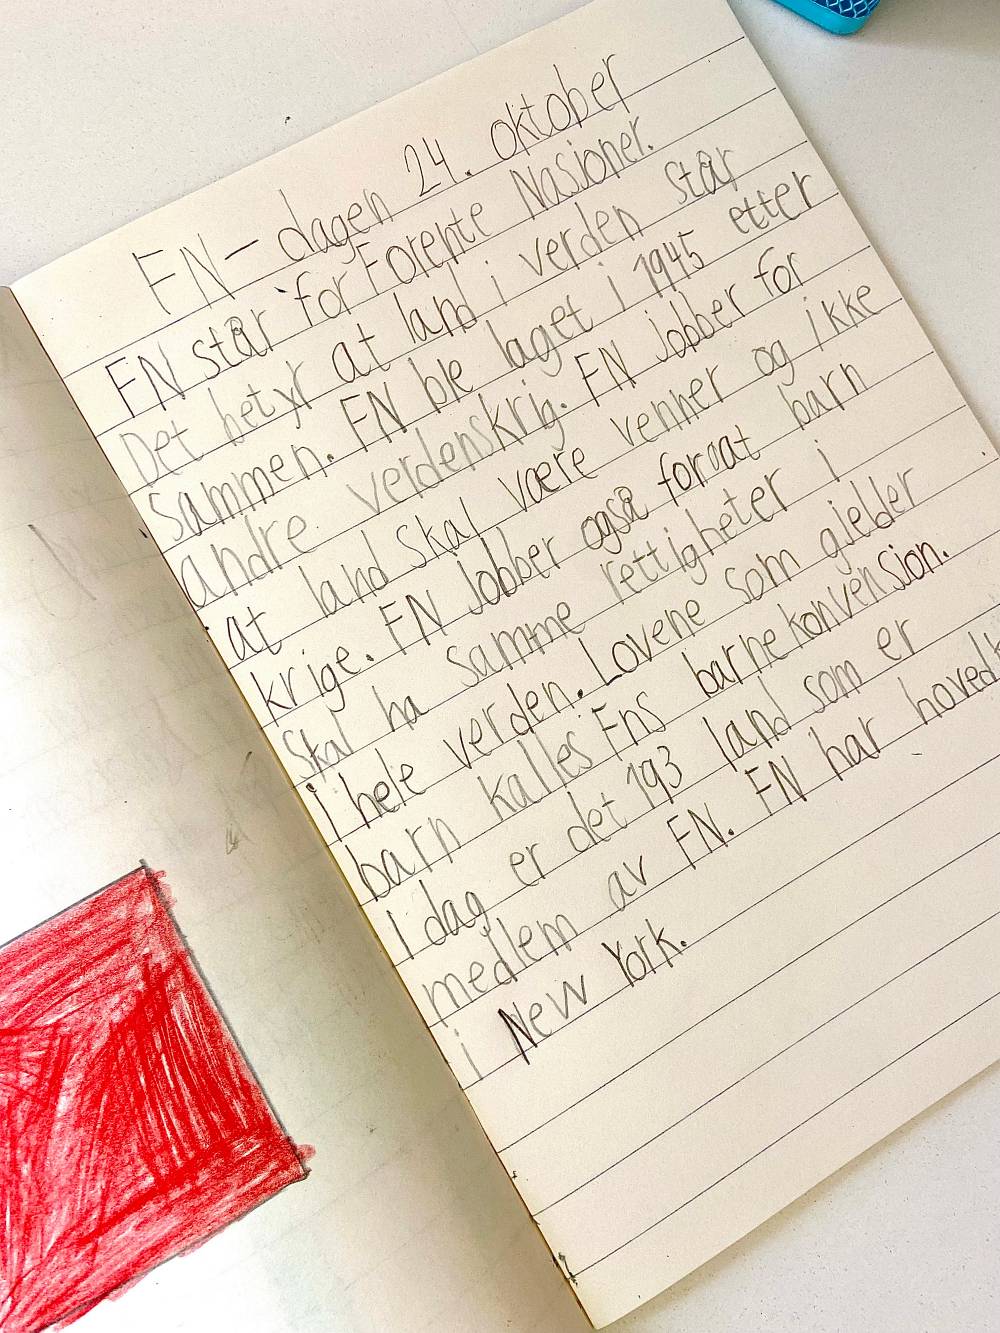 FN-dagen 24. oktober
FN står for Forente Nasjoner.
Det betyr at land i verden står
sammen. FN ble laget i 1945 etter
andre verdenskrig. FN jobber for
at land skal være venner og ikke
krige. FN jobber også foraat barn
skal ha samme rettigheter i
i hele verden. Lovene som gjelder
barn kalles Fns barnekonvensjon.
I dag er det 193 land som er
medlem av FN. FN har hovedk
i New York.